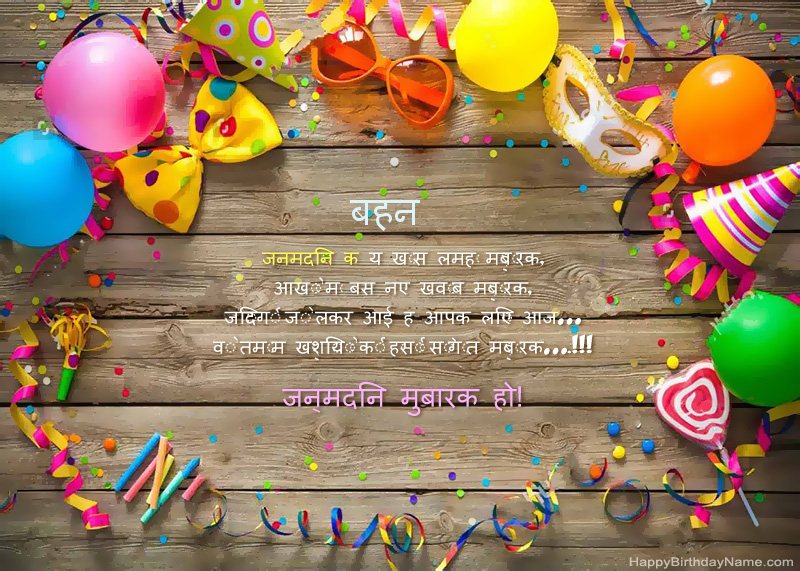 बहन
जन्मदिन के ये खास लम्हें मुबारक,
आँखों में बसे नए ख्वाब मुबारक,
जिंदगी जो लेकर आई है आपके लिए आज...
वो तमाम खुशियों की हंसीं सौगात मुबारक...!!!
जन्मदिन मुबारक हो!
HappyBirthdayName.com